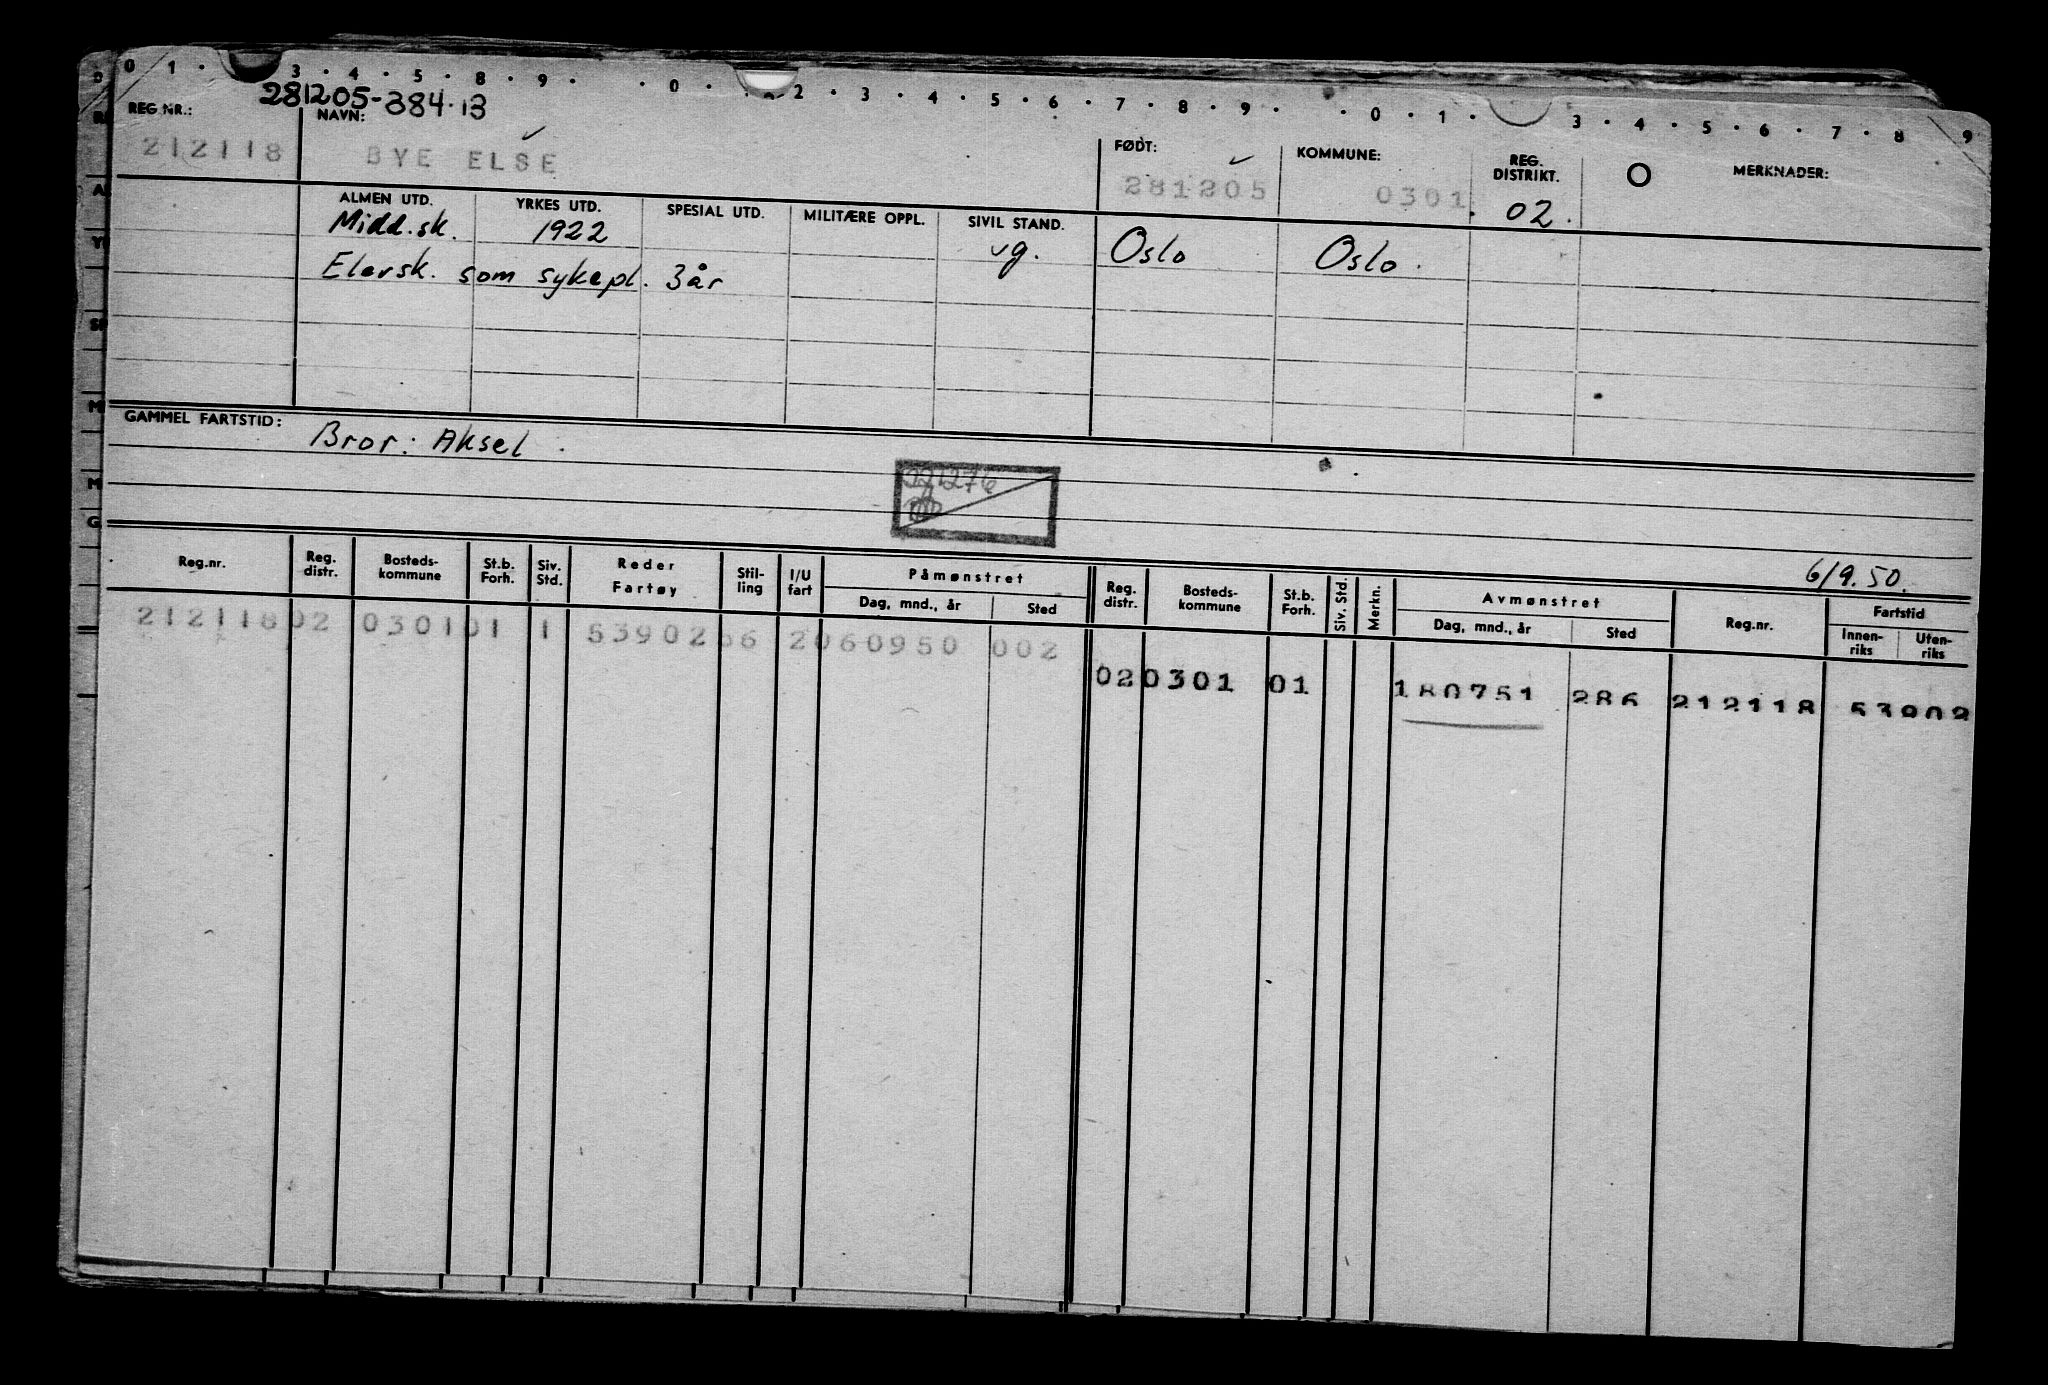 0 1 · 3 · 4 · 5 · 8 · 9 · · 0 · 2 · 3 · 4 · 5 · 6 · 7 · 8 · 9 · · 0 · 1 · 3 · 4 · 5 · 6 · 7 · 8 · 9
281205-384·13
REG NR.: NAVN: FØDT: KOMMUNE: REG. DISTRIKT. O MERKNADER:
212118 BYE ELSE 281205 0301 02.
ALMEN UTD. YRKES UTD. SPESIAL UTD. MILITÆRE OPPL. SIVIL STAND.
Midd.sk. 1922 vg. Oslo Oslo.
Elevsk. som sykepl. 3 år
GAMMEL FARTSTID: Bror: Aksel.
6/9.50.
Reg.nr. Reg. distr. Bosteds-kommune St.b. Forh. Siv. Std. Reder Fartøy Stil-ling I/U fart Påmønstret Reg. distr. Bosteds-kommune St.b. Forh. Siv. Std. Merkn. Avmønstret Reg.nr. Fartstid
Dag, mnd., år Sted Dag, mnd., år Sted Innen-riks Uten-riks
212118 02 0301 01 1 53902 66 2 060950 002
02 0301 01 180751 286 212118 53902